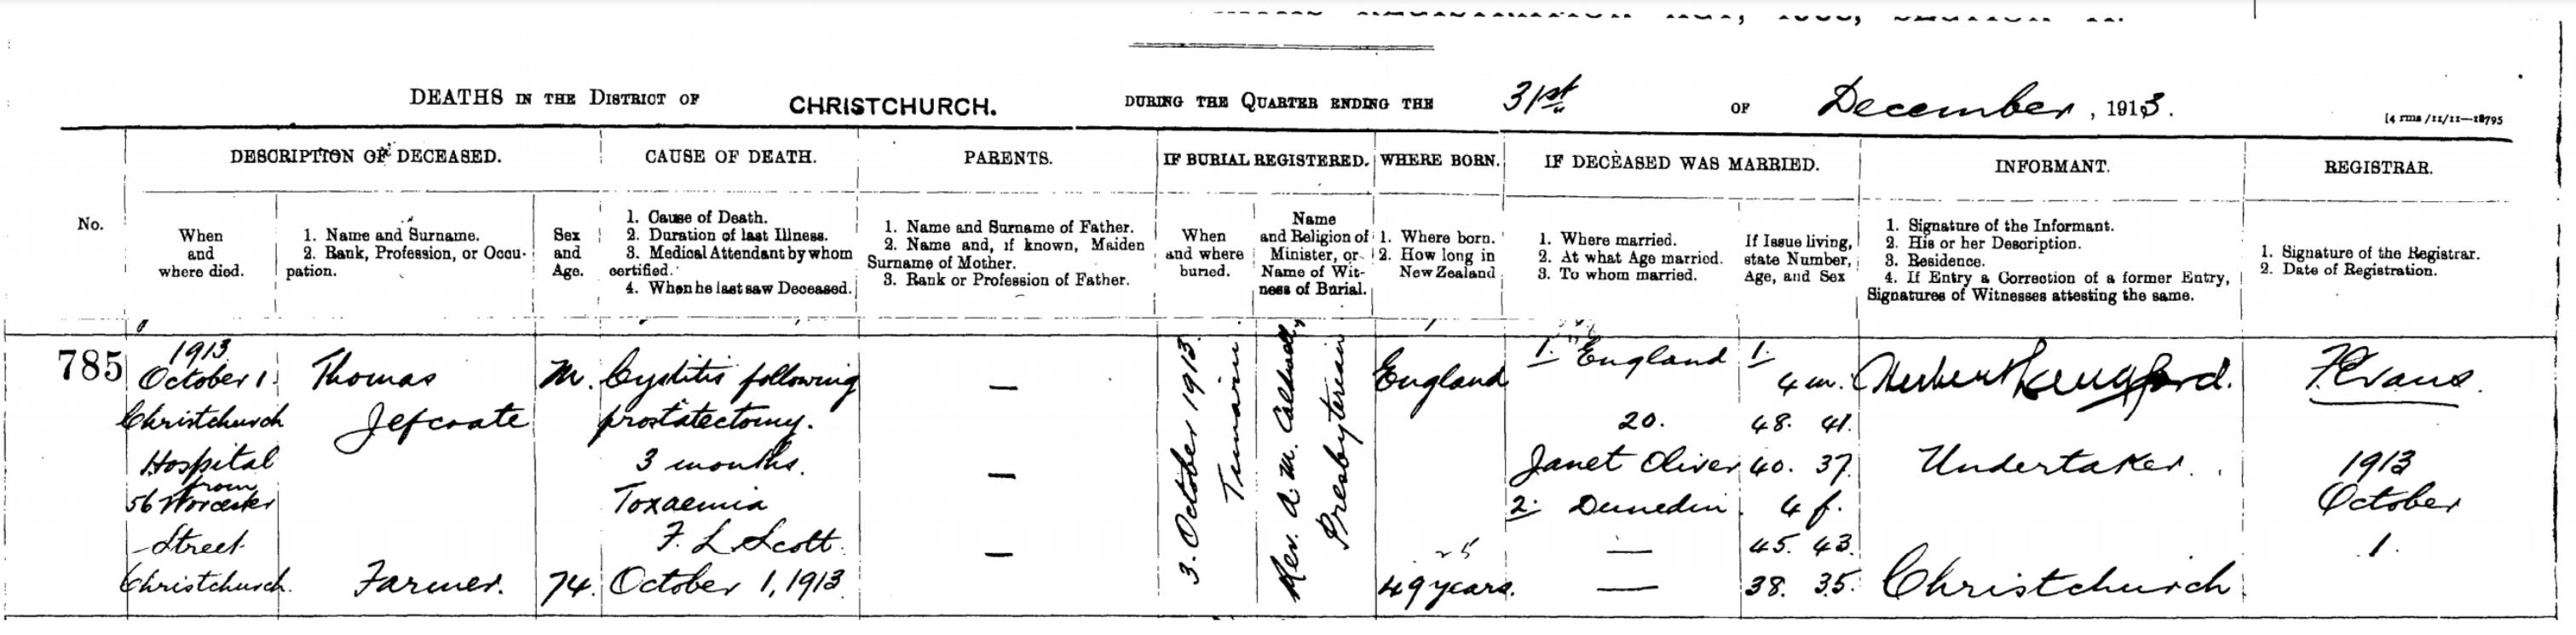 DEATHS IN THE DISTRICT OF CHRISTCHURCH. DURING THE QUARTER ENDING THE 31st OF December, 1913.
[4 rms/11/11—18795
DESCRIPTION OF DECEASED.
CAUSE OF DEATH.
PARENTS.
IF BURIAL REGISTERED.
WHERE BORN.
IF DECEASED WAS MARRIED.
INFORMANT.
REGISTRAR.
No.
When
and
where died.
1. Name and Surname.
2. Rank, Profession, or Occu-
pation.
Sex
and
Age.
1. Cause of Death.
2. Duration of last Illness.
3. Medical Attendant by whom
certified.
4. When he last saw Deceased.
1. Name and Surname of Father.
2. Name and, if known, Maiden
Surname of Mother.
3. Rank or Profession of Father.
When
and where
buried.
Name
and Religion of
Minister, or
Name of Wit-
ness of Burial.
1. Where born.
2. How long in
New Zealand
1. Where married.
2. At what Age married.
3. To whom married.
If Issue living,
state Number,
Age, and Sex
1. Signature of the Informant.
2. His or her Description.
3. Residence.
4. If Entry a Correction of a former Entry,
Signatures of Witnesses attesting the same.
1. Signature of the Registrar.
2. Date of Registration.
785
1913
October 1.
Christchurch
Hospital
from
56 Worcester
Street
Christchurch.
Thomas
Jefcoate
Farmer.
M.
74.
Cystitis following
prostatectomy.
3 months.
Toxaemia
F. L. Scott.
October 1, 1913.
—
—
—
3. October 1913.
Timaru
Rev. A. M.
Presbyterian
England
49 years.
1. England
20.
Janet Oliver
2. Dunedin.
—
—
1.
4 m.
48. 41.
40. 37.
4 f.
45. 43.
38. 35.
Herbert Langford.
Undertaker.
Christchurch
F. Evans.
1913
October
1.